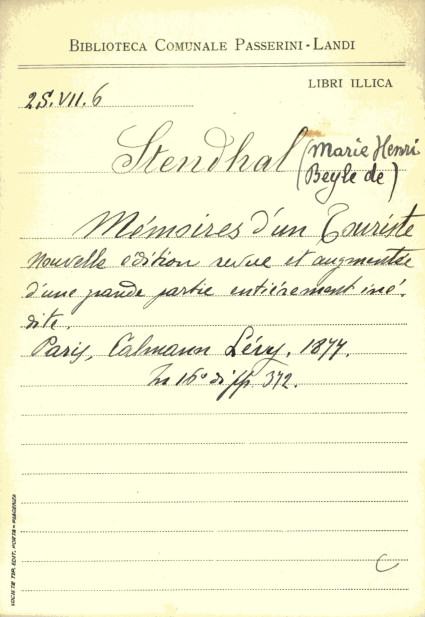 BIBLIOTECA COMUNALE PASSERINI-LANDI
LIBRI ILLICA
2S.VII.6
Stendhal (Marie Henri
Beyle de)
Mémoires d'un Touriste
Nouvelle édition revue et augmentée
d'une grande partie entiérement iné-
dite.
Paris, Calmann Lévy, 1877.
In 16° di pp. 372.
C